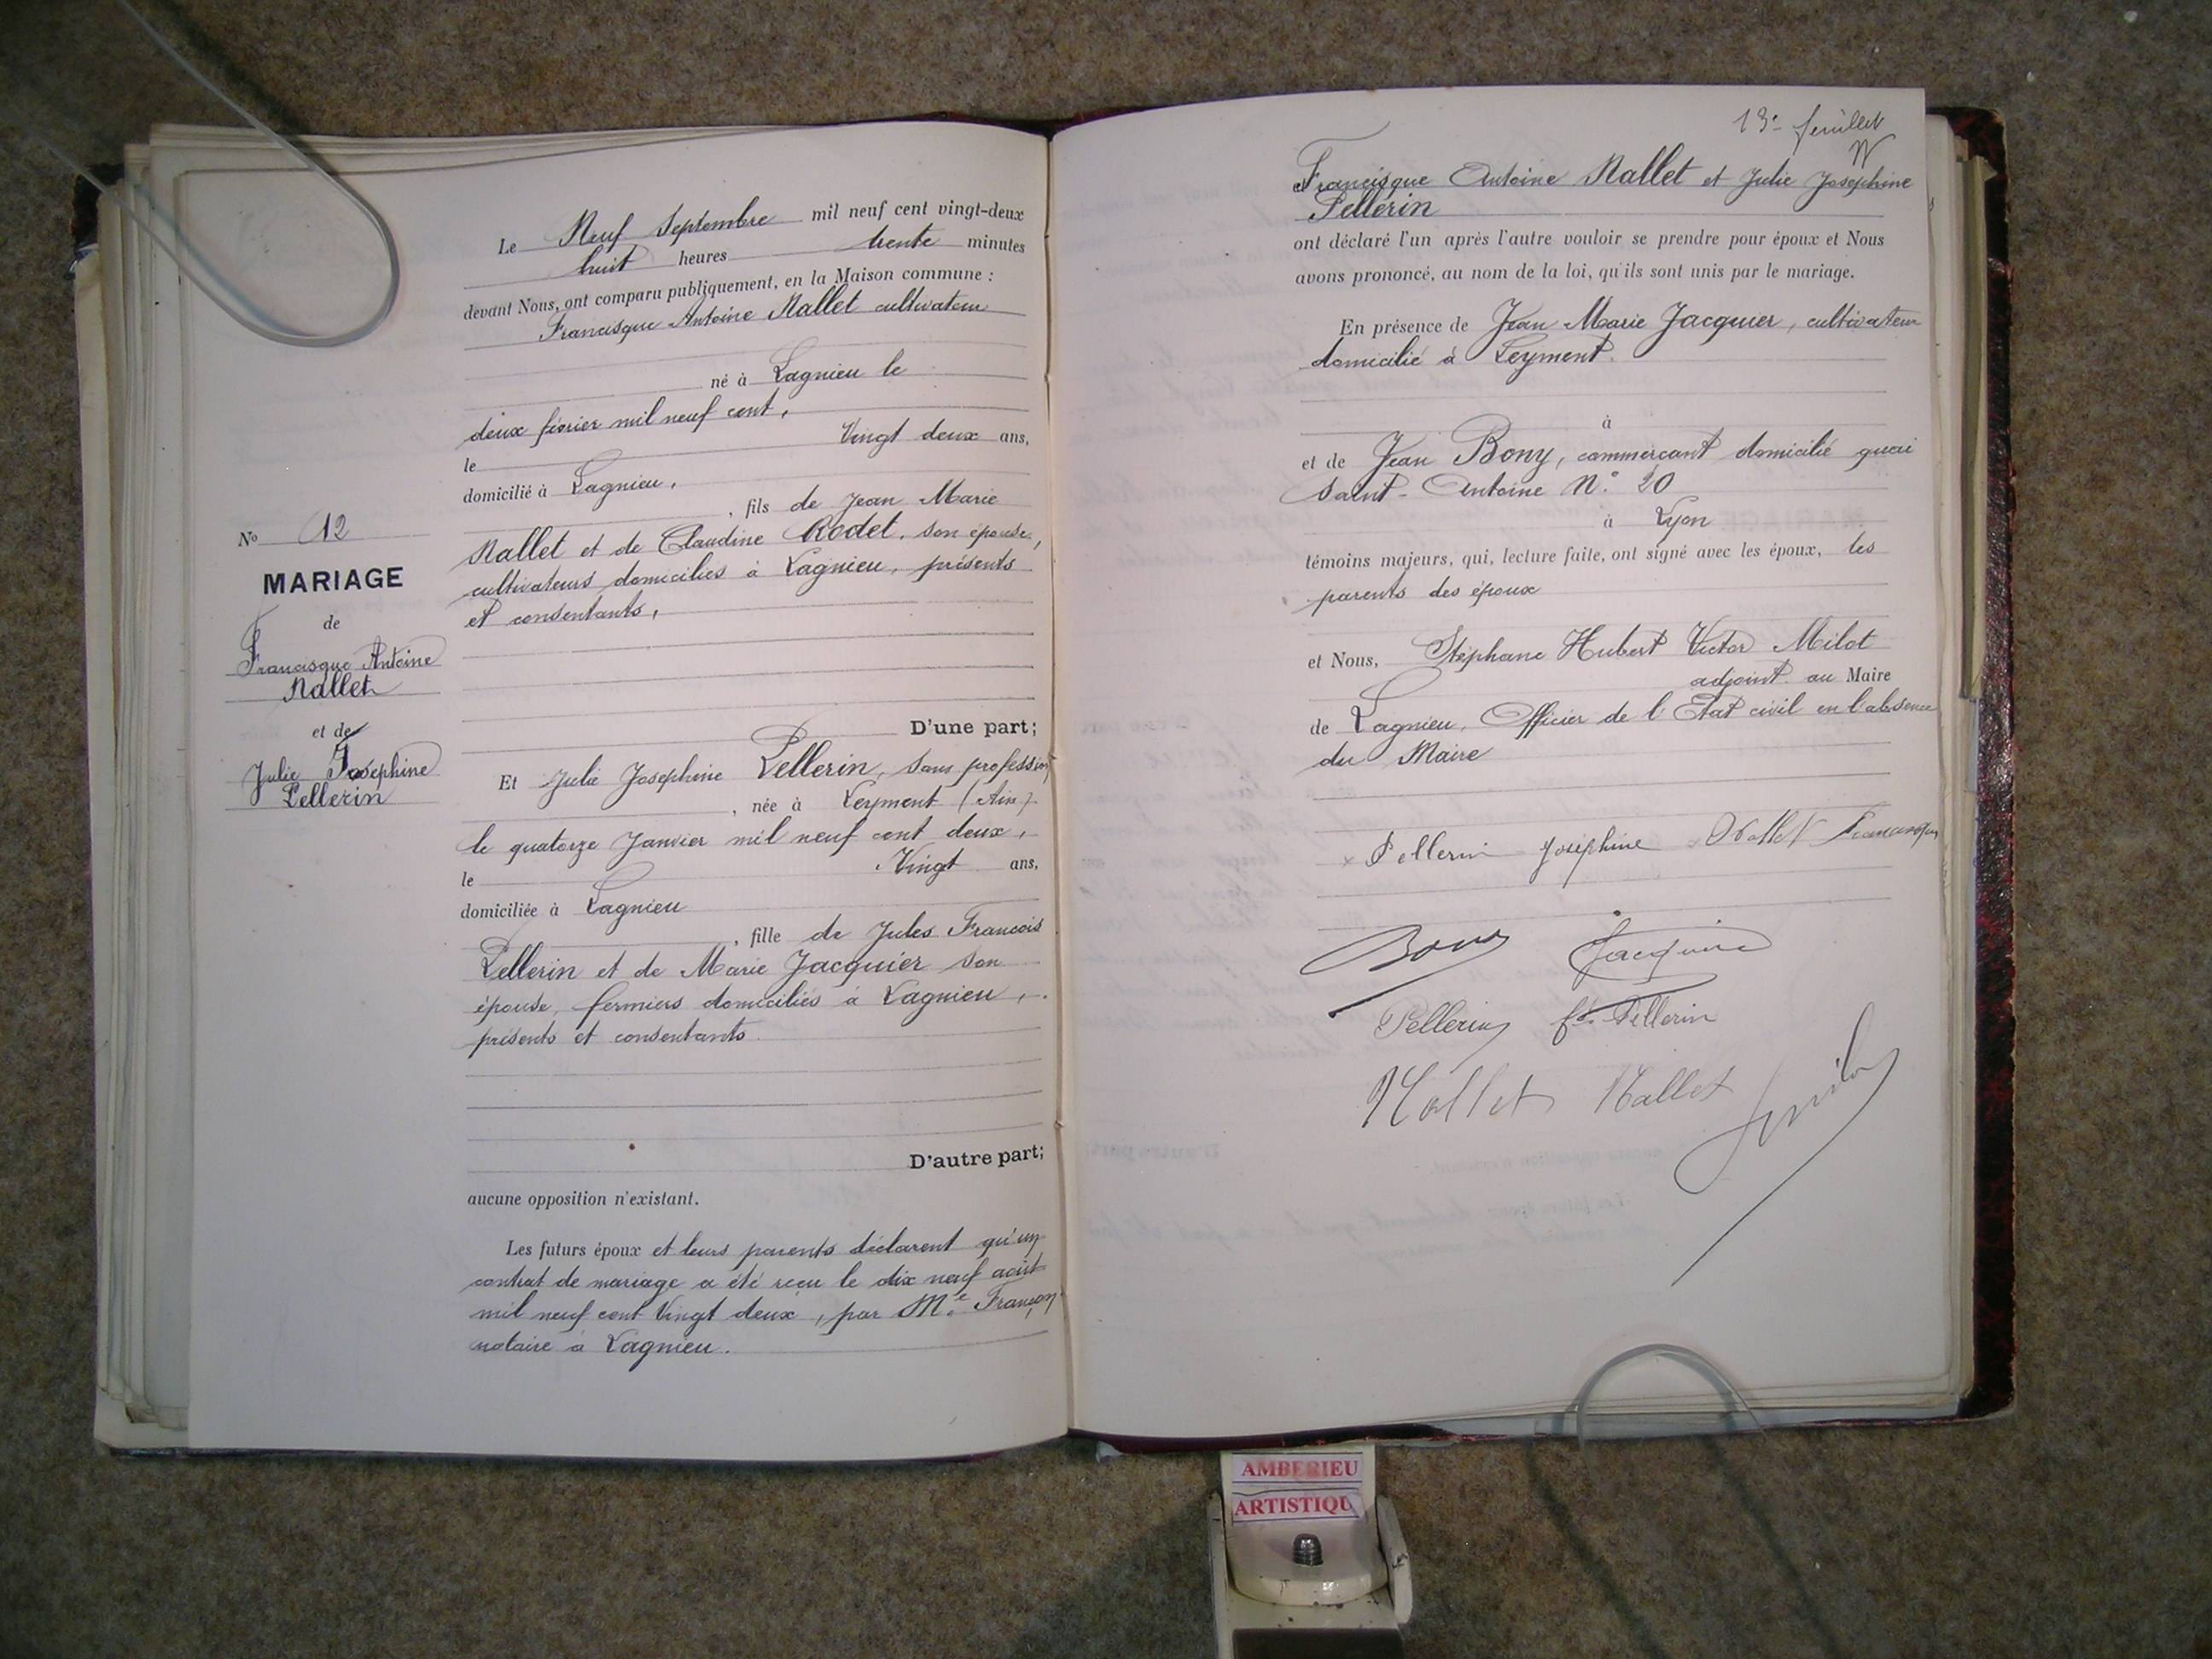 No 12
MARIAGE
de
Francisque Antoine
Nallet
et de
Julie Josephine
Pellerin
Le Neuf Septembre mil neuf cent vingt-deux
huit heures trente minutes
devant Nous, ont comparu publiquement, en la Maison commune :
Francisque Antoine Nallet cultivateur
né à Lagnieu le
deux février mil neuf cent,
le Vingt deux ans,
domicilié à Lagnieu,
, fils de Jean Marie
Nallet et de Claudine Rodet, son épouse,
cultivateurs domiciliés à Lagnieu, présents
et consentants,
D'une part;
Et Julie Josephine Pellerin, sans profession
, née à Leyment (Ain)
le quatorze Janvier mil neuf cent deux,
le Vingt ans,
domiciliée à Lagnieu
, fille de Jules François
Pellerin et de Marie Jacquier son
épouse, fermiers domiciliés à Lagnieu,
présents et consentants
D'autre part;
aucune opposition n'existant.
Les futurs époux et leurs parents déclarent qu'un
contrat de mariage a été reçu le dix neuf août
mil neuf cent Vingt deux, par Me Françon
notaire à Lagnieu.
13e feuillet
Francisque Antoine Nallet et Julie Josephine
Pellerin
ont déclaré l'un après l'autre vouloir se prendre pour époux et Nous
avons prononcé, au nom de la loi, qu'ils sont unis par le mariage.
En présence de Jean Marie Jacquier, cultivateur
domicilié à Leyment.
à
et de Jean Bony, commerçant domicilié quai
Saint-Antoine N° 20
à Lyon
témoins majeurs, qui, lecture faite, ont signé avec les époux, les
parents des époux
et Nous, Stéphane Hubert Victor Milot
adjoint au Maire
de Lagnieu, Officier de l'Etat civil en l'absence
du Maire
x Pellerin Joséphine x Nallet Francisque
Bony Jacquier
Pellerin ft. Pellerin
Nallet Nallet
AMBERIEU
ARTISTIQU